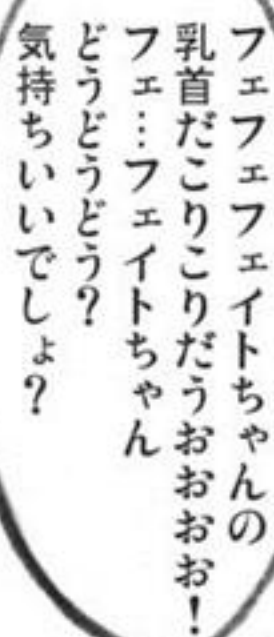 フェフェフェイトちゃんの
乳首だこりこりだうおおおお!
フェ…フェイトちゃん
どうどうどう?
気持ちいいでしょ?